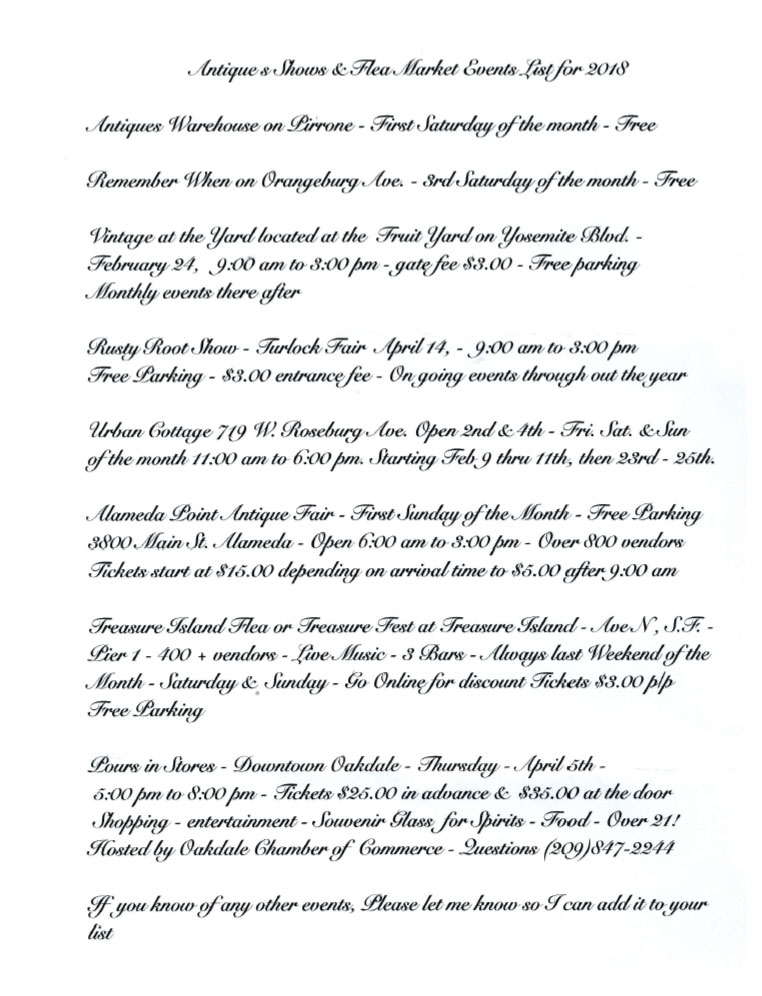 Antique s Shows & Flea Market Events List for 2018
Antiques Warehouse on Pirrone - First Saturday of the month - Free
Remember When on Orangeburg Ave. - 3rd Saturday of the month - Free
Vintage at the Yard located at the Fruit Yard on Yosemite Blvd. -
February 24, 9:00 am to 3:00 pm - gate fee $3.00 - Free parking
Monthly events there after
Rusty Root Show - Turlock Fair April 14, - 9:00 am to 3:00 pm
Free Parking - $3.00 entrance fee - On going events through out the year
Urban Cottage 719 W. Roseburg Ave. Open 2nd & 4th - Fri. Sat. & Sun
of the month 11:00 am to 6:00 pm. Starting Feb 9 thru 11th, then 23rd - 25th.
Alameda Point Antique Fair - First Sunday of the Month - Free Parking
3800 Main St. Alameda - Open 6:00 am to 3:00 pm - Over 800 vendors
Tickets start at $15.00 depending on arrival time to $5.00 after 9:00 am
Treasure Island Flea or Treasure Fest at Treasure Island - Ave N, S.F. -
Pier 1 - 400 + vendors - Live Music - 3 Bars - Always last Weekend of the
Month - Saturday & Sunday - Go Online for discount Tickets $3.00 p/p
Free Parking
Pours in Stores - Downtown Oakdale - Thursday - April 5th -
5:00 pm to 8:00 pm - Tickets $25.00 in advance & $35.00 at the door
Shopping - entertainment - Souvenir Glass for Spirits - Food - Over 21!
Hosted by Oakdale Chamber of Commerce - Questions (209)847-2244
If you know of any other events, Please let me know so I can add it to your
list